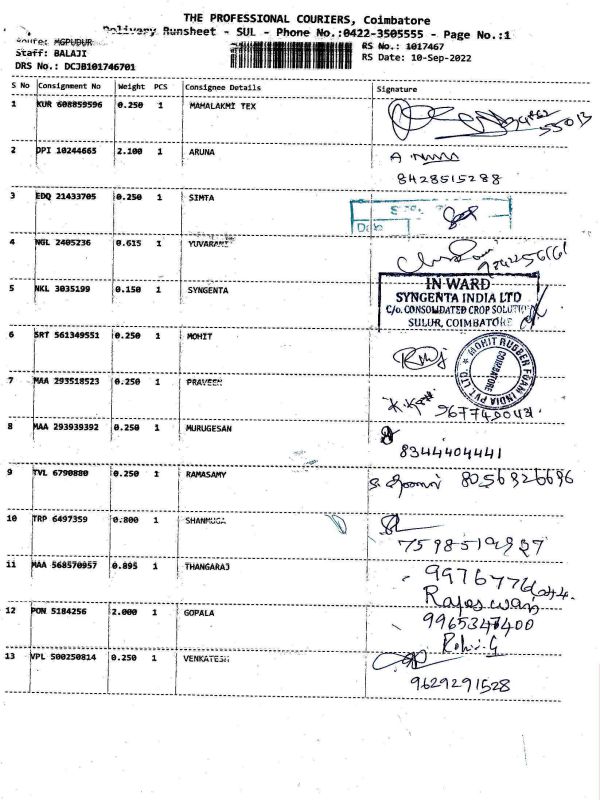 THE PROFESSIONAL COURIERS, Coimbatore
Delivery Runsheet - SUL - Phone No.:0422-3505555 - Page No.:1
Route: MGPUDUR
Staff: BALAJI
DRS No.: DCJB101746701
RS No.: 1017467
RS Date: 10-Sep-2022
S No Consignment No Weight PCS Consignee Details Signature
1 KUR 608859596 0.250 1 MAHALAKMI TEX
55013
2 DPI 10244665 2.100 1 ARUNA
8428515288
3 EDQ 21433705 0.250 1 SIMTA
4 NGL 2405236 0.615 1 YUVARANI
5 NKL 3035199 0.150 1 SYNGENTA
IN-WARD
SYNGENTA INDIA LTD
C/o. CONSOLIDATED CROP SOLUTION
SULUR, COIMBATORE
6 SRT 561349551 0.250 1 MOHIT
MOHIT RUBBER FOAM INDIA PVT. LTD.
COIMBATORE
7 MAA 293518523 0.250 1 PRAVEEN
8 MAA 293939392 0.250 1 MURUGESAN
8344404441
9 TVL 6790880 0.250 1 RAMASAMY
8056826696
10 TRP 6497359 0.800 1 SHANMUGA
7598519927
11 MAA 568570957 0.895 1 THANGARAJ
Rajeswari
12 PON 5184256 2.000 1 GOPALA
9965347400
Rohi.G
13 VPL 500250814 0.250 1 VENKATESH
9629291528